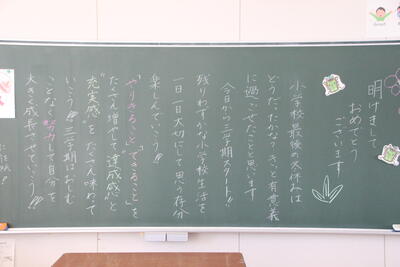 明けまして
おめでとう
ございます
小学校最後の冬休みは
どうだったかな？きっと有意義
に過ごせたことと思います
今日から三学期スタート!!
残りわずかな小学校生活を
一日一日大切にして思う存分
楽しんでいこう!!
「やりきること」「できること」を
たくさん増やして、達成感と
充実感をたくさん味わって
いこう!!三学期は
ことなく努力して自分を
大きく成長させていこう!!!